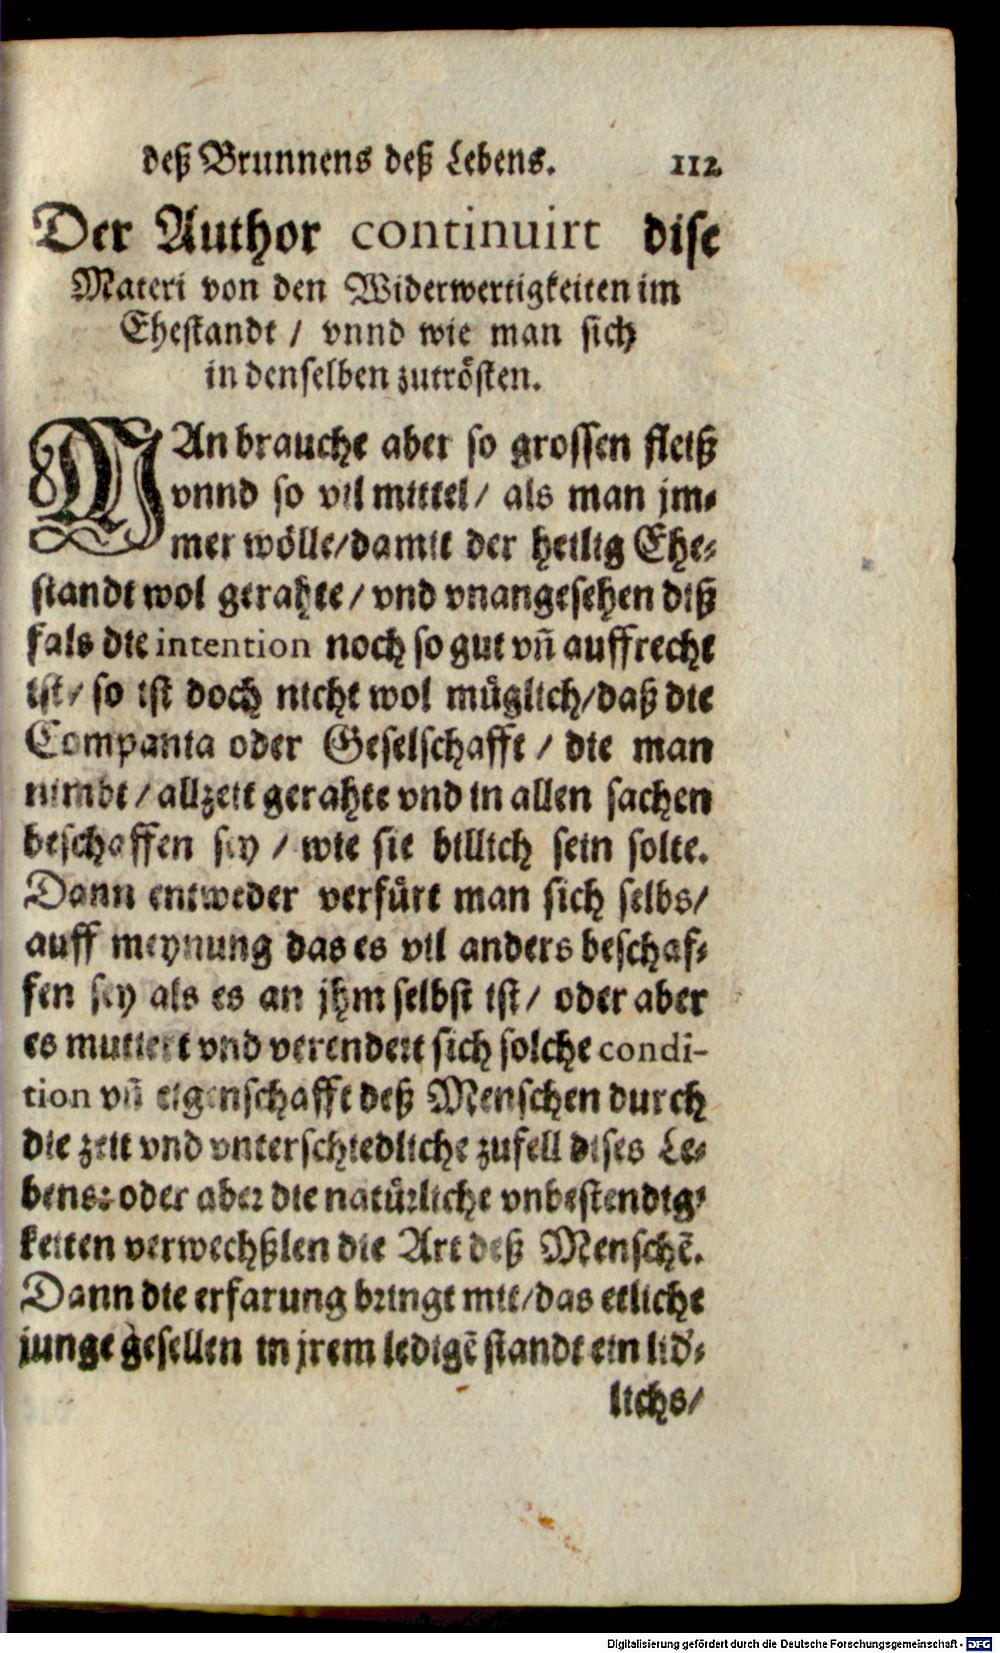 deß Brunnens deß Lebens. 112
Der Author continuirt dise
Materi von den Widerwertigkeiten im
Ehestandt / vnnd wie man sich
in denselben zutrösten.
MAn brauche aber so grossen fleiß
vnnd so vil mittel / als man jm⸗
mer wölle / damit der heilig Ehe⸗
standt wol gerahte / vnd vnangesehen diß
fals die intention noch so gut vñ auffrecht
ist / so ist doch nicht wol müglich / daß die
Compania oder Geselschafft / die man
nimbt / allzeit gerahte vnd in allen sachen
beschaffen sey / wie sie billich sein solte.
Dann entweder verfürt man sich selbs /
auff meynung das es vil anders beschaf⸗
fen sey als es an jhm selbst ist / oder aber
es mutiert vnd verendert sich solche condi-
tion vñ eigenschafft deß Menschen durch
die zeit vnd vnterschiedliche zufell dises Le⸗
bens: oder aber die natürliche vnbestendig⸗
keiten verwechßlen die Art deß Menschẽ.
Dann die erfarung bringt mit / das etliche
junge gesellen in jrem ledigẽ standt ein lid⸗
lichs /
Digitalisierung gefördert durch die Deutsche Forschungsgemeinschaft - DFG